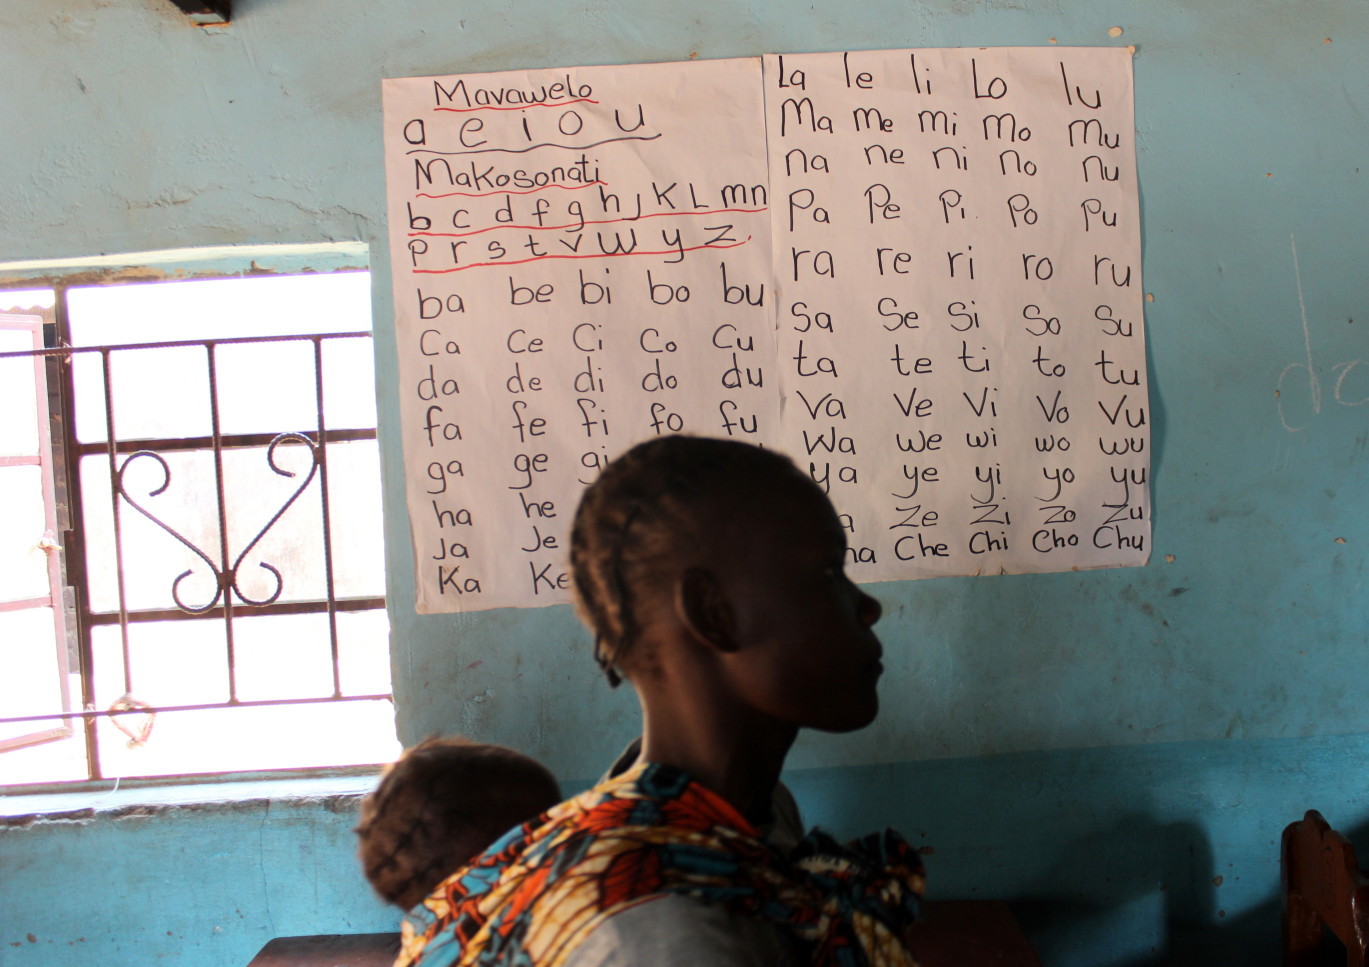 Mavawelo
a e i o u
Makosonati
b c d f g h j K L m n
p r s t v w y z.
ba be bi bo bu
Ca Ce Ci Co Cu
da de di do du
fa fe fi fo fu
ga ge gi
ha he
Ja Je
Ka Ke
La le li Lo lu
Ma me mi mo mu
na ne ni no nu
Pa Pe Pi Po Pu
ra re ri ro ru
Sa Se Si So Su
ta te ti to tu
Va Ve Vi Vo Vu
Wa we wi wo wu
ya ye yi yo yu
a Ze Zi Zo Zu
ha Che Chi Cho Chu